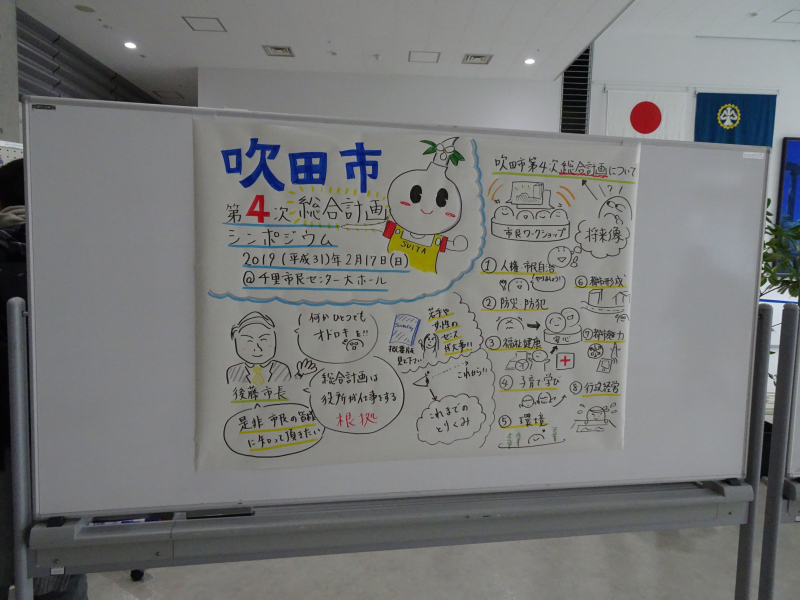 吹田市
第4次 総合計画
シンポジウム
2019(平成31)年2月17日(日)
@千里市民センター大ホール
SUITA
後藤市長
何かひとつでも
オドロキを!!
総合計画は
役所が仕事をする
根拠
是非 市民の皆様
に知って頂きたい
概要版
見て下さい
若手や
女性の
センス
が大事!!
これから!!
これまでの
とりくみ
吹田市第4次総合計画について
市民ワークショップ
将来像
① 人権 市民自治
② 防災 防犯
③ 福祉 健康
安心
④ 子育て 学び
⑤ 環境
⑥ 都市形成
⑦ 都市魅力
⑧ 行政経営